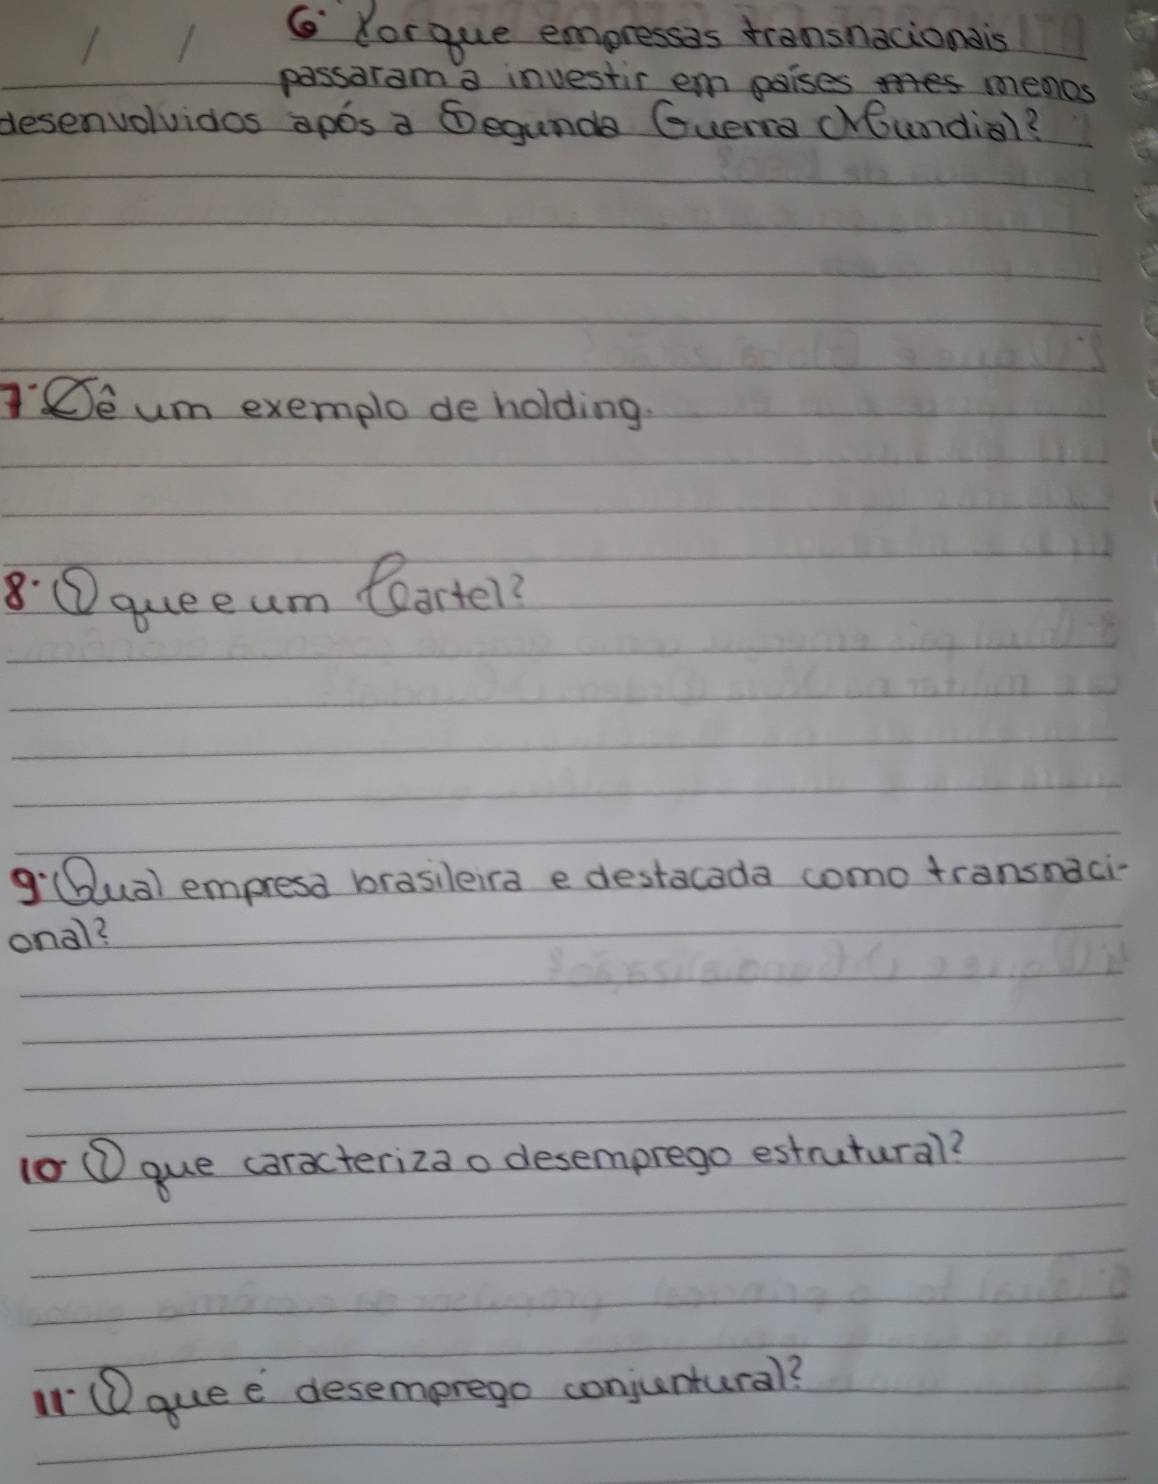 6. Porque empressas transnacionais
passaram a investir em países menos
desenvolvidos após a Segunda Guerra Mundial?
7. Dê um exemplo de holding.
8. O que e um Cartel?
9. Qual empresa brasileira e destacada como transnaci-
onal?
10 O que caracteriza o desemprego estrutural?
11. O que é desemprego conjuntural?